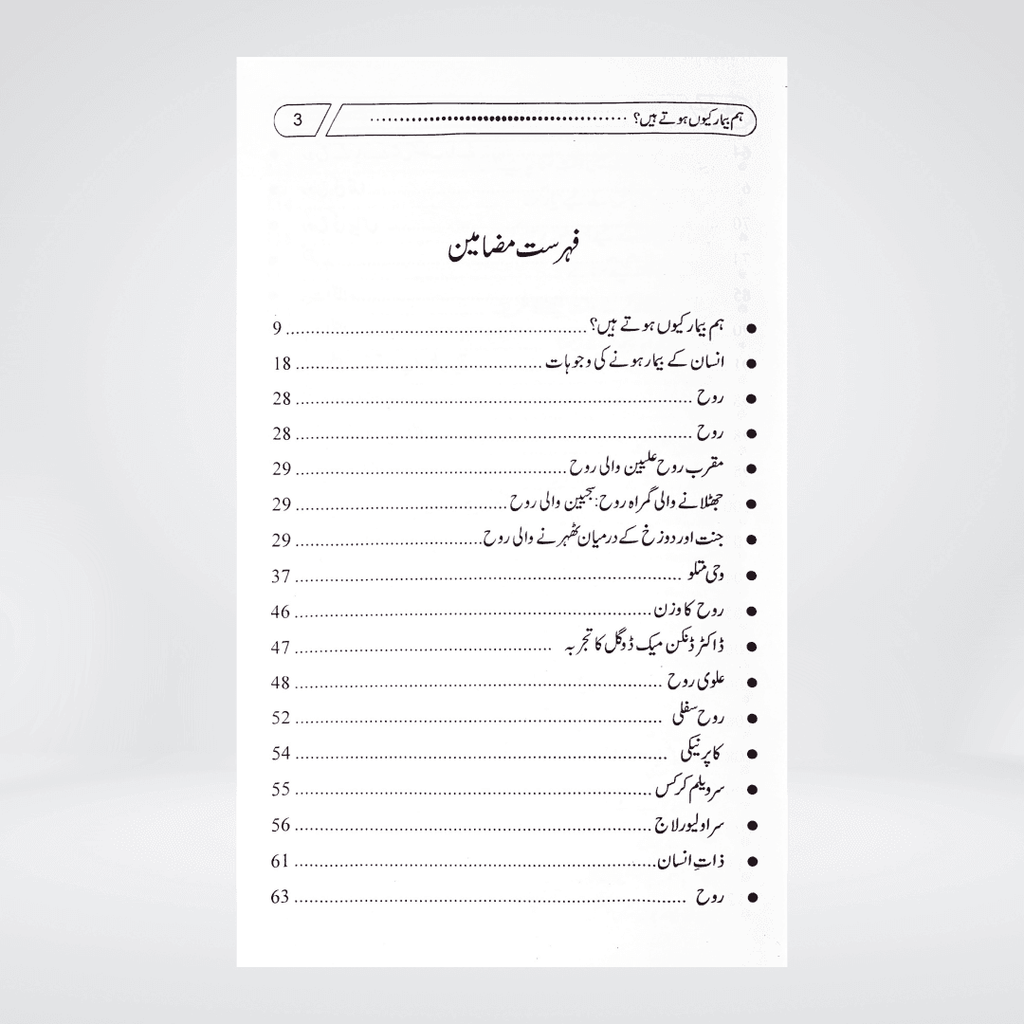 ہم بیمار کیوں ہوتے ہیں؟ 3
فہرست مضامین
● ہم بیمار کیوں ہوتے ہیں؟ 9
● انسان کے بیمار ہونے کی وجوہات 18
● روح 28
● روح 28
● مقرب روح علیین والی روح 29
● جھٹلانے والی گمراہ روح: سجیین والی روح 29
● جنت اور دوزخ کے درمیان ٹھہرنے والی روح 29
● وحی متلو 37
● روح کا وزن 46
● ڈاکٹر ڈنکن میک ڈوگل کا تجربہ 47
● علوی روح 48
● روح سفلی 52
● کاپرنیکی 54
● سر ویلم کرکس 55
● سر اولیور لاج 56
● ذاتِ انسان 61
● روح 63